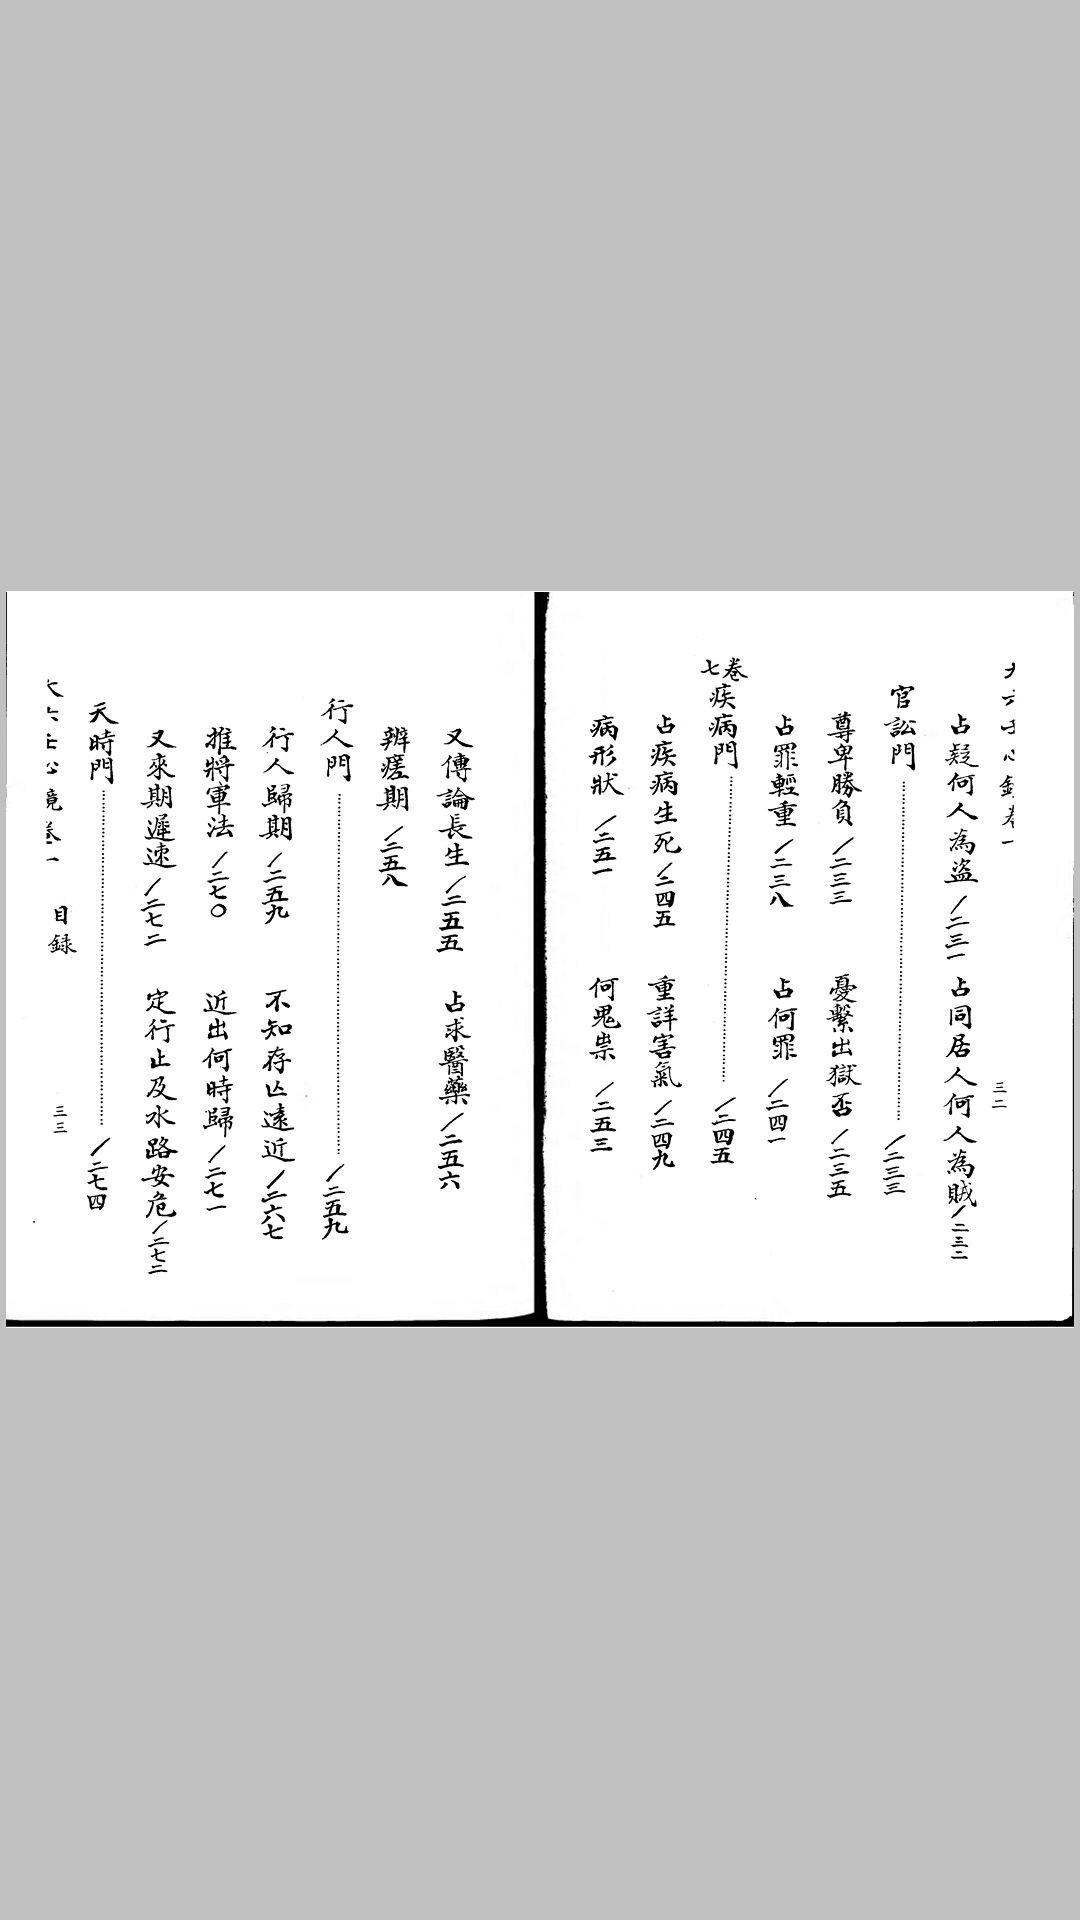 占疑何人為盜/二三一 占同居人何人為賊/二三二
官訟門……/二三三
尊卑勝負/二三三 憂繫出獄否/二三五
占罪輕重/二三八 占何罪/二四一
卷七 疾病門……/二四五
占疾病生死/二四五 重詳害氣/二四九
病形狀/二五一 何鬼祟/二五三
三二
又傳論長生/二五五 占求醫藥/二五六
辨瘥期/二五八
行人門……/二五九
行人歸期/二五九 不知存亾遠近/二六七
推將軍法/二七〇 近出何時歸/二七一
又來期遲速/二七二 定行止及水路安危/二七二
天時門……/二七四
卷一 目録 三三